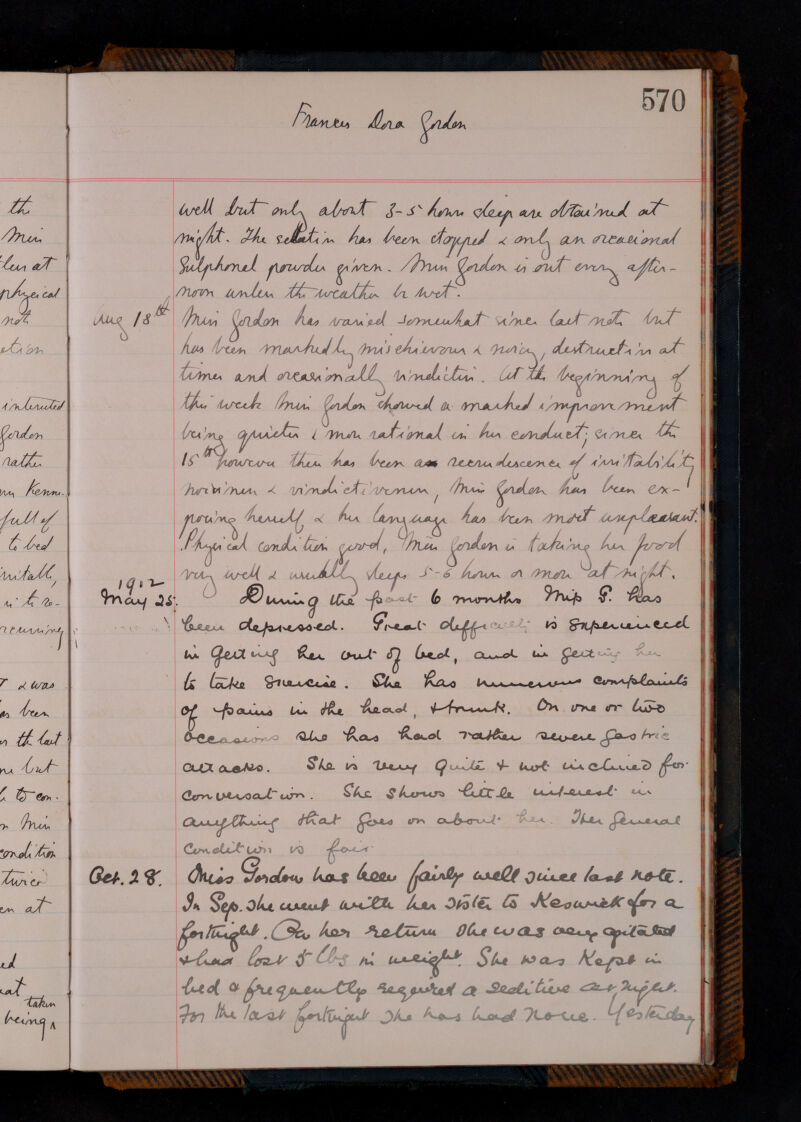 570
Frances Dora Gordon
the
Miss
less at
physical
not
interested
Gordon
rather
full of
to bed
irritable,
is to re-
recurring
& was
as been
the last
but
to con-
Miss
condition
twice
at
taken
being
well but only about 3-5 hours sleep are obtained at
night. The sedative has been stopped & only an occasional
Sulphonal powder given. Miss Gordon is out every after-
noon unless the weather be wet.
Aug 18th Miss Gordon has varied somewhat since last note but
has been markedly mischievous & noisy, destructive at
times and occasionally vindictive. At the beginning of
this week Miss Gordon showed a marked improvement
being quieter & more rational in her conduct; since the
15th however there has been a recrudescence of irritability
noisiness & vindictiveness, Miss Gordon has been ex-
posing herself & her language has been most unpleasant.
Physical condition good, Miss Gordon is taking her food
very well & usually sleeps 5-6 hours or more at night.
1912
May 25. During the past 6 months Miss G. has
been depressed. Great difficulty is experienced
in getting her out of bed, and in getting her
to take exercise. She has numerous complaints
of pains in the head, & trunk. On one or two
occasions she has had rather severe gastric
attacks. She is very quite & not inclined for
conversation. She shows little interest in
anything that goes on about her. Her general
condition is fair
Oct. 28. Miss Gordon has been fairly well since last note.
In Sep. she went with her sister to Keswick for a
fortnight. On her return she was very agitated
& had lost 5 lbs in weight. She was kept in
bed & frequently required a seditive at night.
For the last fortnight she has had none. Yesterday